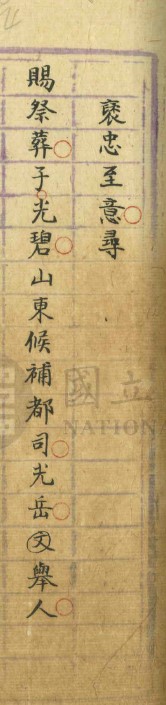 褒忠至意尋
賜祭葬子光碧山東候補都司光岳文舉人
國立
NATION